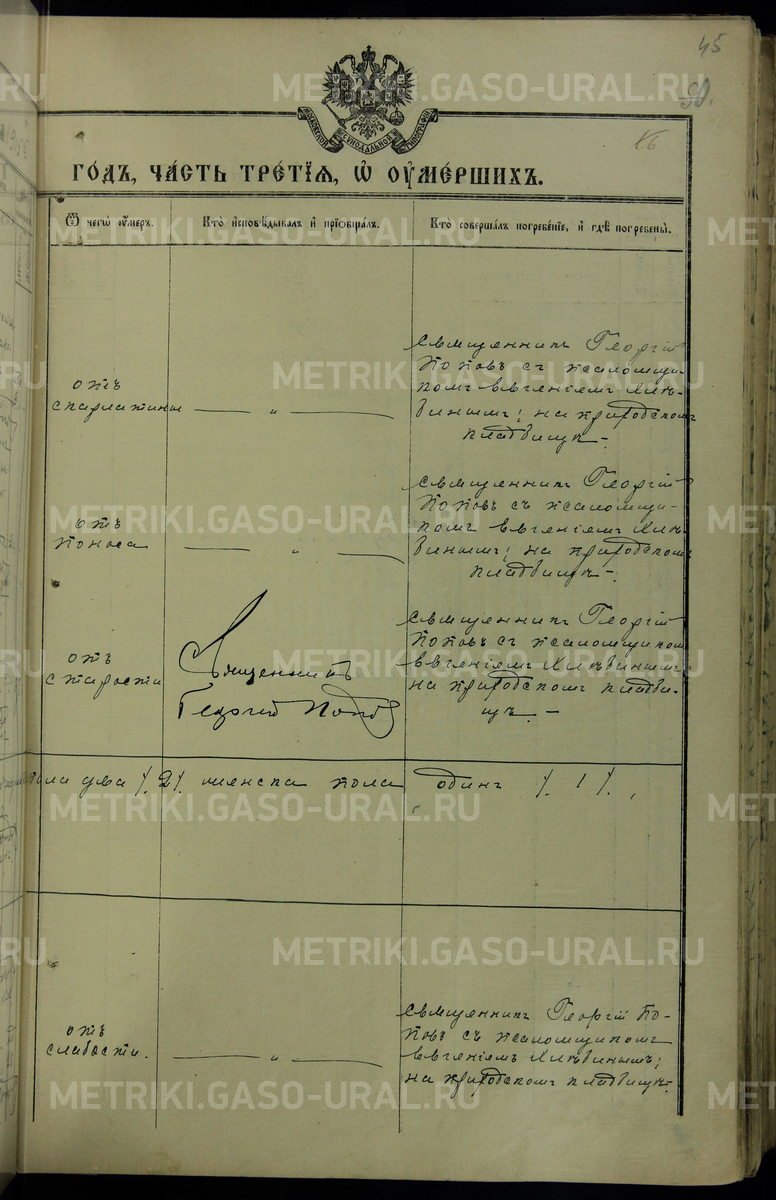 45
50.
МОСКОВСКОЙ СѴНОДАЛЬНОЙ ТИПОГРАФІИ
ГОДЪ, ЧАСТЬ ТРЕТІЯ, Ѡ ОУМЕРШИХЪ.
Ѿ чегѡ оумеръ.
Кто исповѣдывалъ и пріобщалъ.
Кто совершалъ погребеніе, и гдѣ погребены.
отъ
скарлатины
— „ —
Священникъ Георгій
Поповъ съ псаломщи-
комъ Евгеніемъ
на приходскомъ
кладбищѣ.
отъ
поноса
— „ —
Священникъ Георгій
Поповъ съ псаломщи-
комъ Евгеніемъ
на приходскомъ
кладбищѣ.
отъ
старости
Священникъ
Георгій Поповъ
Священникъ Георгій
Поповъ съ псаломщикомъ
Евгеніемъ
на приходскомъ кладби-
щѣ. —
пола два /.2/. женска пола один /.1/.
отъ
слабости.
— „ —
Священникъ Георгій По-
повъ съ псаломщикомъ
Евгеніемъ
на приходскомъ кладбищѣ.
METRIKI.GASO-URAL.RU